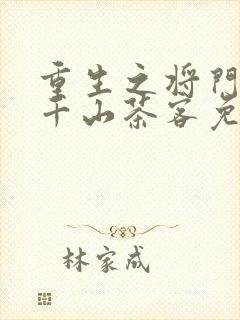 重生之将门
千山茶客免
林家成